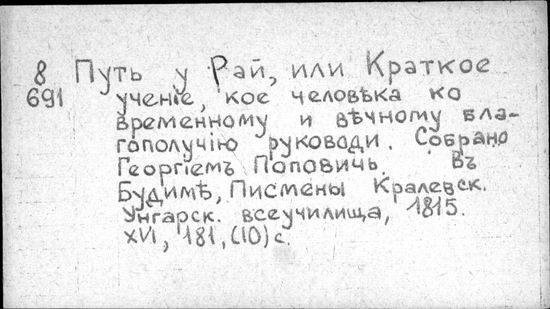 8 Путь у Рай, или Краткое
691 ученіе, кое человѣка ко
временному и вѣчному бла-
гополучію руководи. Собрано
Георгіемъ Поповичь. Въ
Будимѣ, Писмены Кралевск.
Унгарск. всеучилища, 1815.
XVI, 181, (10) с.